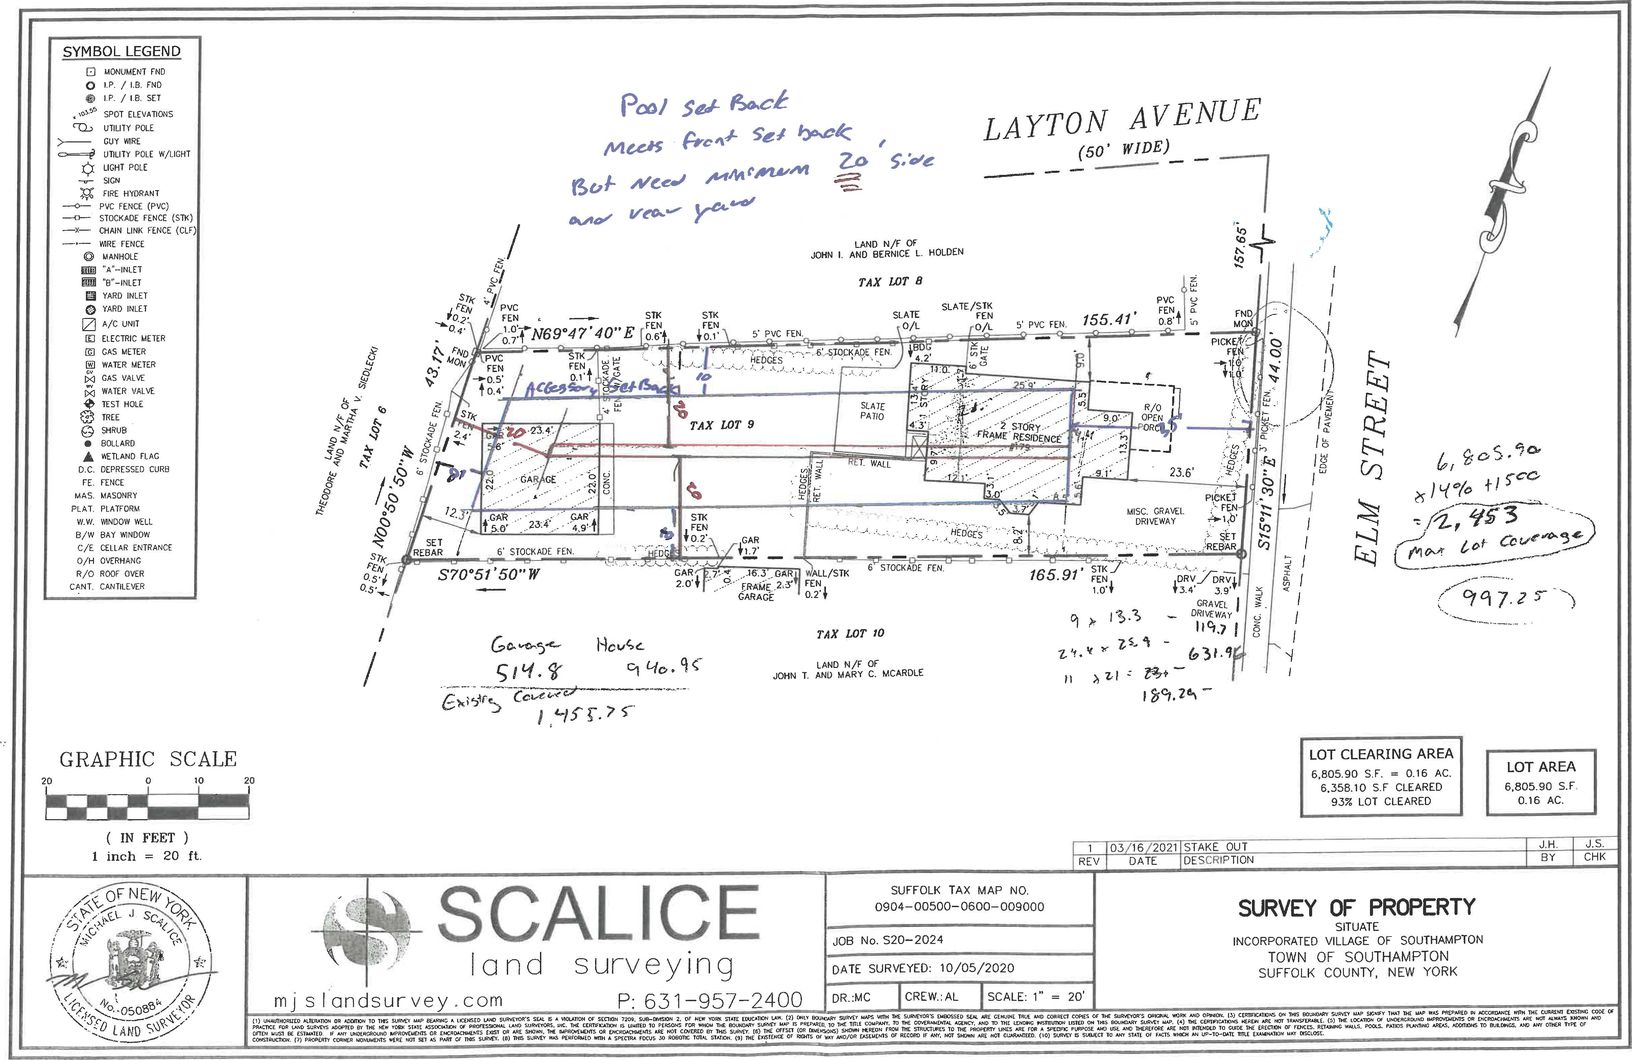 SYMBOL LEGEND
MONUMENT FND
I.P. / I.B. FND
I.P. / I.B. SET
103.55 SPOT ELEVATIONS
UTILITY POLE
GUY WIRE
UTILITY POLE W/LIGHT
LIGHT POLE
SIGN
FIRE HYDRANT
PVC FENCE (PVC)
STOCKADE FENCE (STK)
CHAIN LINK FENCE (CLF)
WIRE FENCE
MANHOLE
"A"-INLET
"B"-INLET
YARD INLET
YARD INLET
A/C UNIT
E ELECTRIC METER
G GAS METER
W WATER METER
GAS VALVE
WATER VALVE
TEST HOLE
TREE
SHRUB
BOLLARD
WETLAND FLAG
D.C. DEPRESSED CURB
FE. FENCE
MAS. MASONRY
PLAT. PLATFORM
W.W. WINDOW WELL
B/W BAY WINDOW
C/E CELLAR ENTRANCE
O/H OVERHANG
R/O ROOF OVER
CANT. CANTILEVER
Pool Set Back
Meets front Set back
But Need minimum 20' side
and rear yard
LAYTON AVENUE
(50' WIDE)
157.65'
LAND N/F OF
JOHN I. AND BERNICE L. HOLDEN
TAX LOT 8
4' PVC FEN.
STK
FEN
0.2'
0.4'
PVC
FEN
1.0'
0.7'
N69°47'40"E
STK
FEN
0.6'
STK
FEN
0.1'
5' PVC FEN.
SLATE
O/L
SLATE/STK
FEN
O/L
5' PVC FEN.
155.41'
PVC
FEN
0.8'
5' PVC FEN.
FND
MON
43.17'
FND
MON
PVC
FEN
0.5'
0.4'
STK
FEN
0.1'
4' STOCKADE
FEN/GATE
HEDGES
6' STOCKADE FEN.
BDG
4.2'
6' STK
GATE
9.0'
PICKET
FEN
1.0'
1.0'
44.00'
3' PICKET FEN.
EDGE OF PAVEMENT
ELM STREET
LAND N/F OF
THEODORE AND MARTHA V. SIEDLECKI
TAX LOT 6
N00°50'50"W
6' STOCKADE FEN.
Accessory Set Back
10
20
TAX LOT 9
SLATE
PATIO
11.0'
13.4'
4.3'
STORY
25.9'
5.5'
2 STORY
FRAME RESIDENCE
#175
R/O
OPEN
PORCH
9.0'
13.3'
35'
STK
FEN
2.4'
GAR
5.6'
20
23.4'
22.0'
GARAGE
22.0'
CONC.
RET. WALL
RET. WALL
HEDGES
9.7'
12.1'
3.1'
3.0'
3.5'
3.7'
5.6'
9.1'
23.6'
HEDGES
12.3'
GAR
5.0'
23.4'
GAR
4.9'
20
STK
FEN
0.2'
8.2'
HEDGES
MISC. GRAVEL
DRIVEWAY
PICKET
FEN
1.0'
SET
REBAR
S15°11'30"E
SET
REBAR
STK
FEN
0.5'
0.5'
6' STOCKADE FEN.
HEDGES
GAR
1.7'
S70°51'50"W
GAR
2.0'
2.7'
0.4'
16.3'
GAR
2.3'
FRAME
GARAGE
WALL/STK
FEN
0.2'
6' STOCKADE FEN.
165.91'
STK
FEN
1.0'
DRV
3.4'
DRV
3.9'
GRAVEL
DRIVEWAY
CONC. WALK
ASPHALT
6,805.90
x 14% + 1500
= 2,453
Max Lot Coverage
997.25
9 x 13.3 - 119.71
24.4 x 25.9 - 631.96
11 x 21 =
189.29 -
TAX LOT 10
LAND N/F OF
JOHN T. AND MARY C. MCARDLE
Garage House
514.8 940.95
Existing Covered
1,455.75
GRAPHIC SCALE
20 0 10 20
( IN FEET )
1 inch = 20 ft.
LOT CLEARING AREA
6,805.90 S.F. = 0.16 AC.
6,358.10 S.F CLEARED
93% LOT CLEARED
LOT AREA
6,805.90 S.F.
0.16 AC.
1 03/16/2021 STAKE OUT J.H. J.S.
REV DATE DESCRIPTION BY CHK
STATE OF NEW YORK
MICHAEL J. SCALICE
No.-050884
LICENSED LAND SURVEYOR
SCALICE
land surveying
mjslandsurvey.com P: 631-957-2400
SUFFOLK TAX MAP NO.
0904-00500-0600-009000
JOB No. S20-2024
DATE SURVEYED: 10/05/2020
DR.:MC CREW.: AL SCALE: 1" = 20'
SURVEY OF PROPERTY
SITUATE
INCORPORATED VILLAGE OF SOUTHAMPTON
TOWN OF SOUTHAMPTON
SUFFOLK COUNTY, NEW YORK